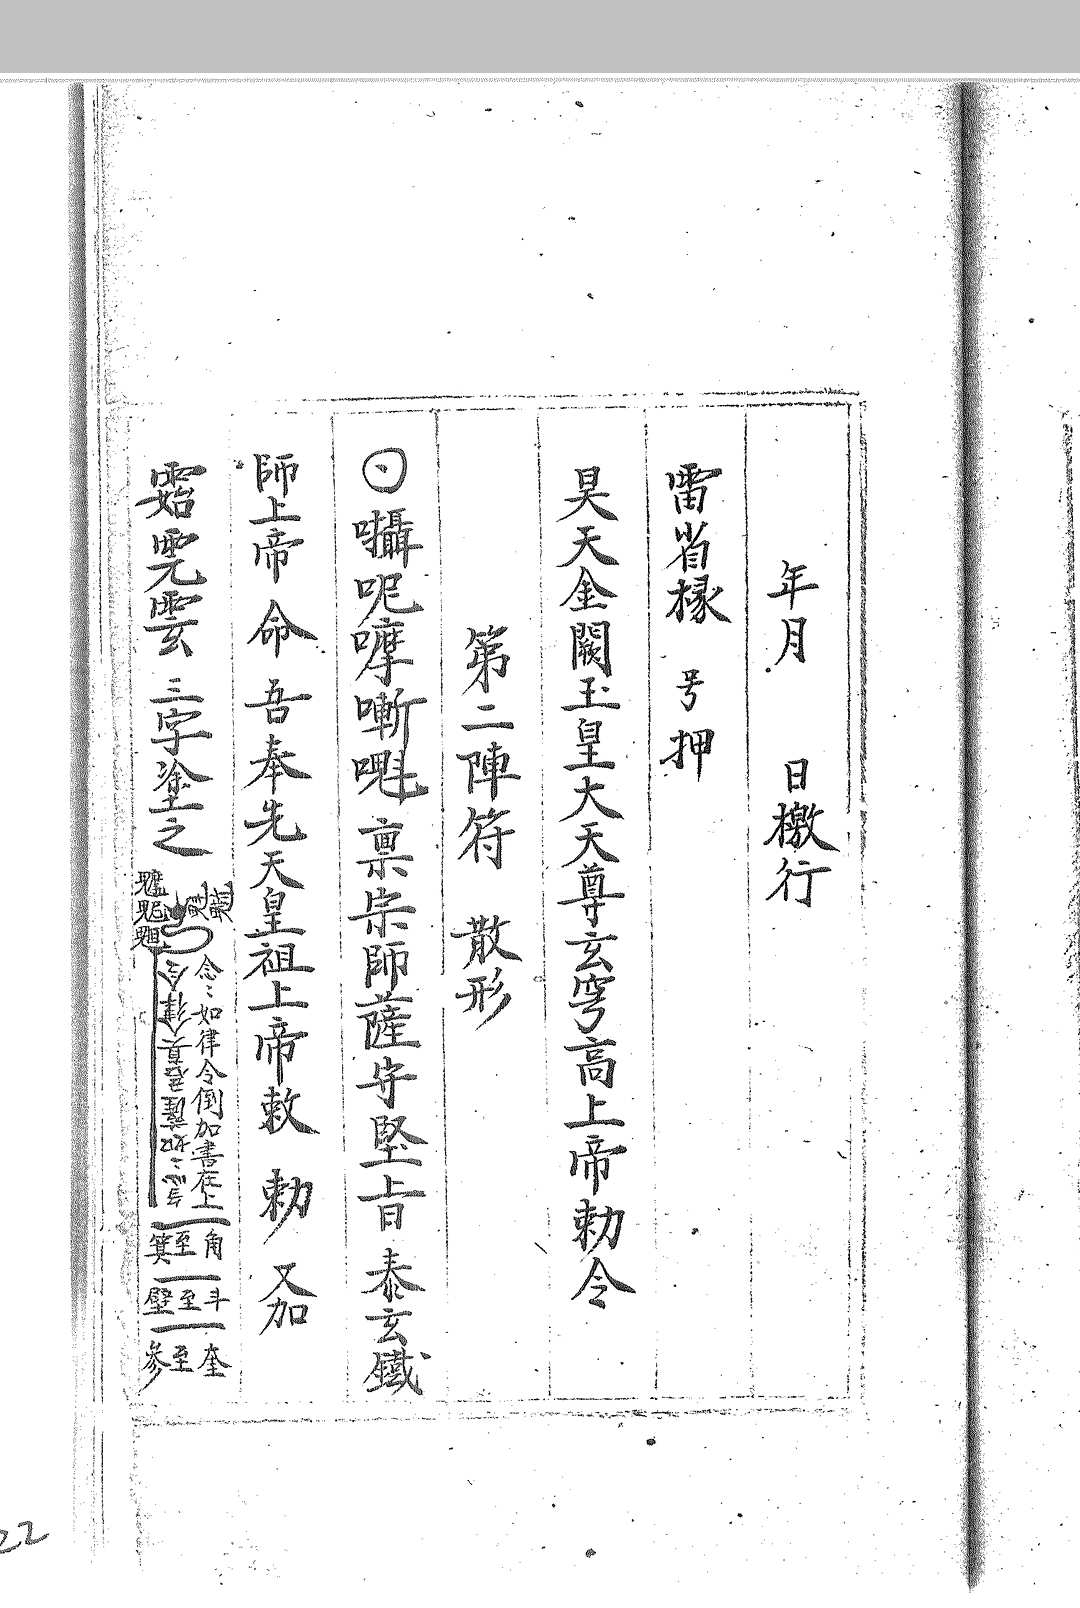 年月 日檄行
雷省椽 号押
昊天金闕玉皇大天尊玄穹高上帝勅令
第二陣符 散形
囉呢嚤嘶 禀宗師薩守堅上旨泰玄鐵
師上帝 命 吾奉先天皇祖上帝敕 勅 又加
三字塗之
念〻如律令倒加書在上
角至箕
斗至壁
奎至參
22